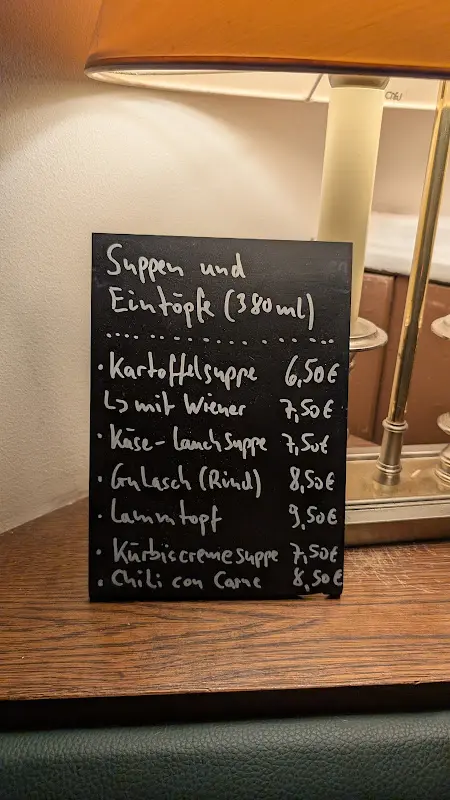 Suppen und
Eintöpfe (380ml)
· Kartoffelsuppe 6,50€
↳ mit Wiener 7,50€
· Käse-Lauchsuppe 7,50€
· Gulasch (Rind) 8,50€
· Lammtopf 9,50€
· Kürbiscremesuppe 7,50€
· Chili con Carne 8,50€